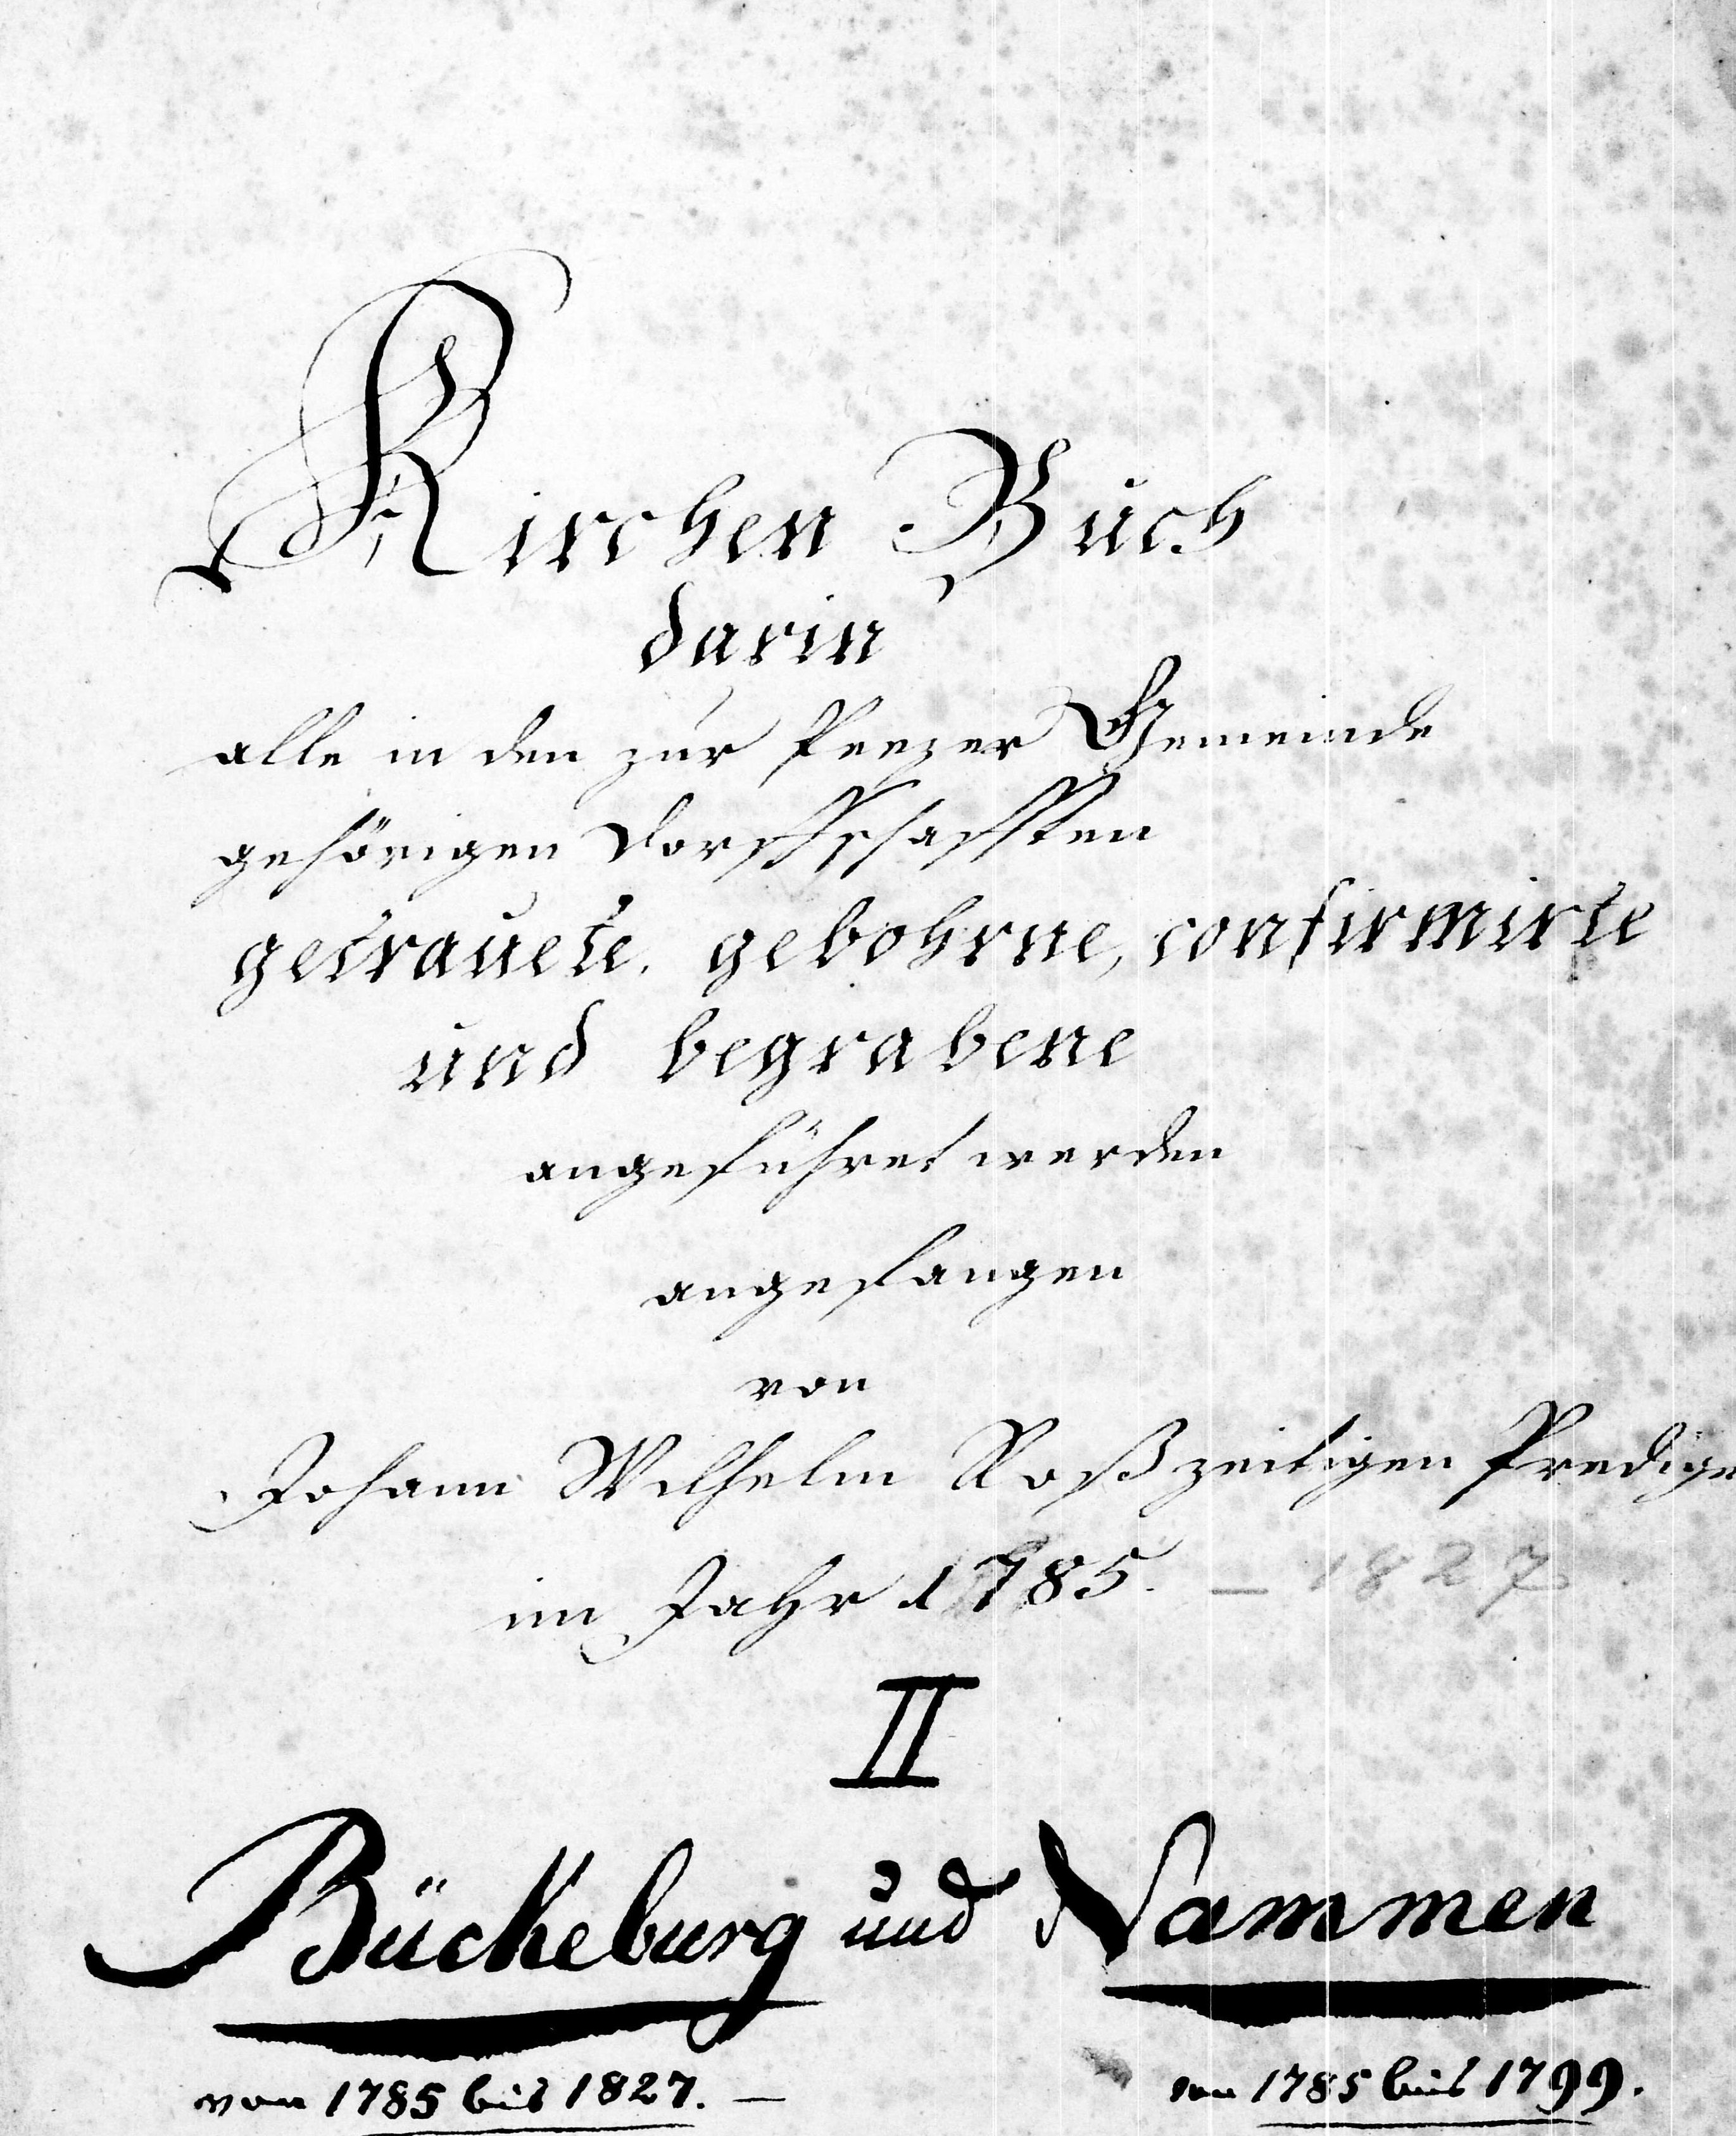 Kirchen Buch
darin
alle in den zur Peezer Gemeinde
gehörigen Dorffschafften
getrauete, gebohrne, confirmirte
und begrabene
angeführet werden
angefangen
von
Johann Wilhelm Roß zeitigen Predige
im Jahr 1785. — 1827
II
Bückeburg und Nammen
von 1785 bis 1827. — von 1785 bis 1799.